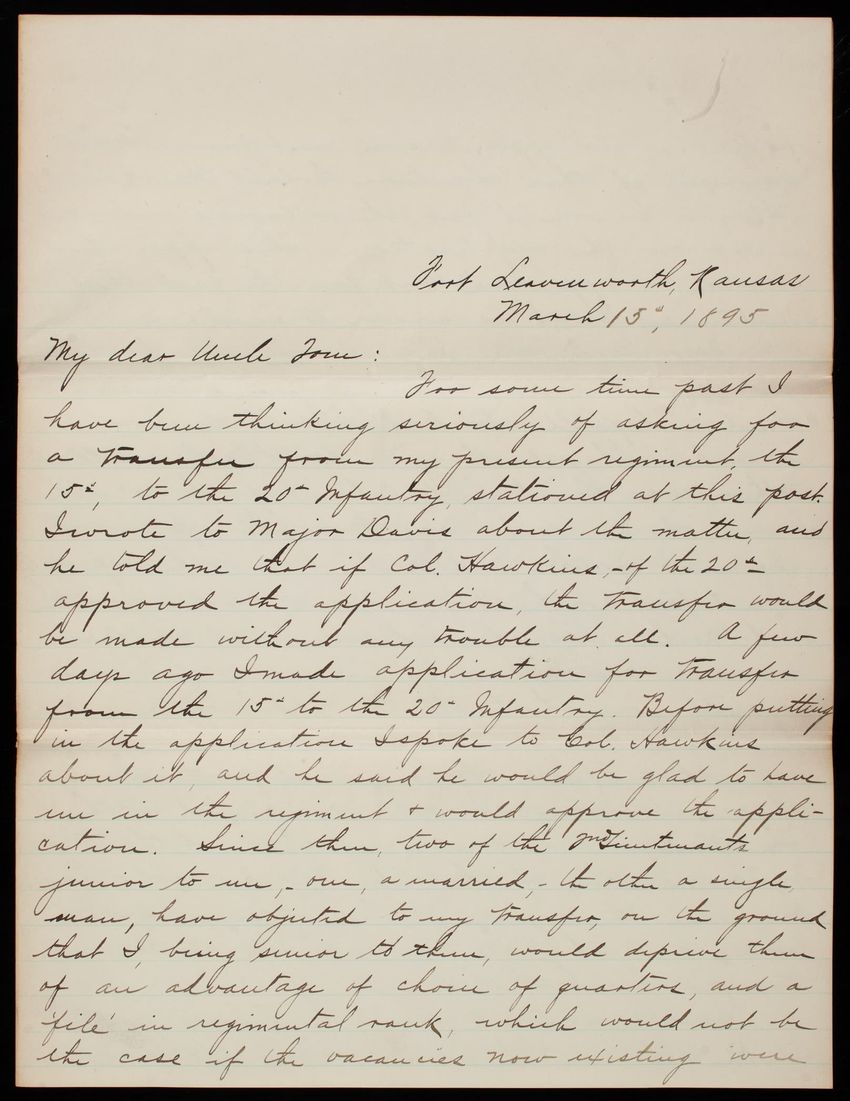 Fort Leavenworth, Kansas
March 15th, 1895
My dear Uncle Tom:
For some time past I
have been thinking seriously of asking for
a transfer from my present regiment, the
15th, to the 20th Infantry, stationed at this post.
I wrote to Major Davis about the matter, and
he told me that if Col. Hawkins, - of the 20th -
approved the application, the transfer would
be made without any trouble at all. A few
days ago I made application for transfer
from the 15th to the 20th Infantry. Before putting
in the application I spoke to Col. Hawkins
about it, and he said he would be glad to have
me in the regiment + would approve the appli-
cation. Since then, two of the 2nd Lieutenants
junior to me, - one, a married, - the other a single
man, have objected to my transfer, on the ground
that I, being senior to them, would deprive them
of an advantage of choice of quarters, and a
'file' in regimental rank, which would not be
the case if the vacancies now existing were